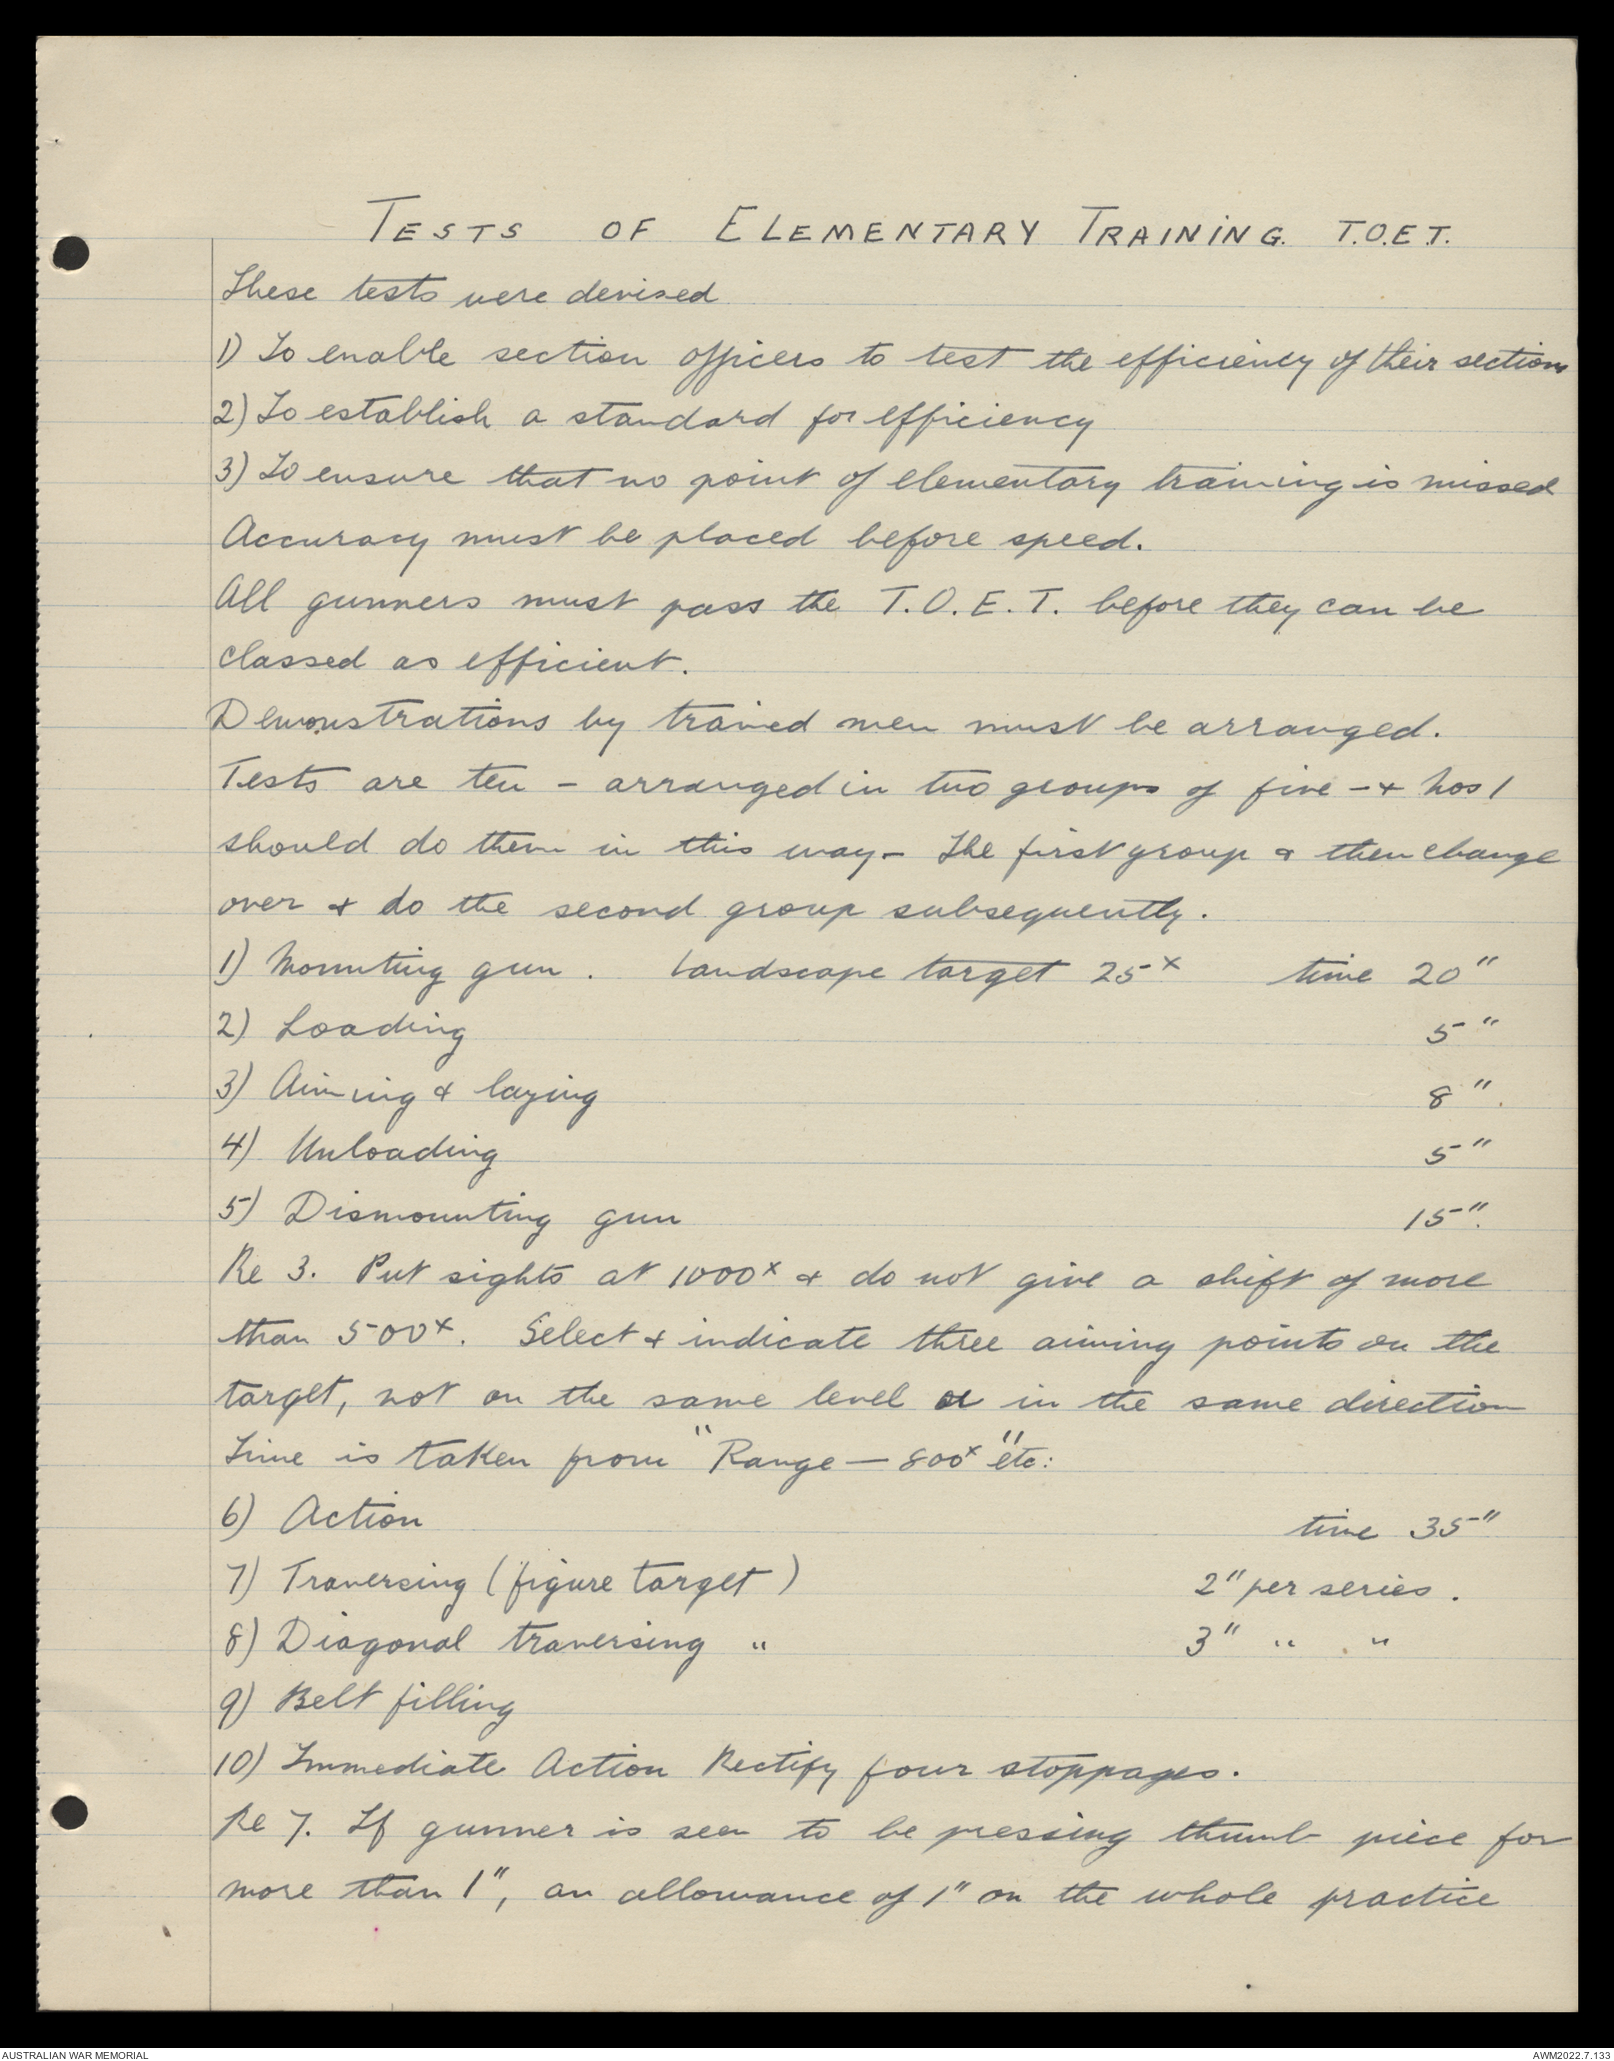 TESTS OF ELEMENTARY TRAINING. T.O.E.T.
These tests were devised
1) To enable section officers to test the efficiency of their sections
2) To establish a standard for efficiency
3) To ensure that no point of elementary training is missed
Accuracy must be placed before speed.
All gunners must pass the T.O.E.T. before they can be
classed as efficient.
Demonstrations by trained men must be arranged.
Tests are ten - arranged in two groups of five - & Nos 1
should do them in this way - The first group & then change
over & do the second group subsequently.
1) Mounting gun. Landscape target 25x time 20"
2) Loading 5"
3) Aiming & laying 8".
4) Unloading 5"
5) Dismounting gun 15".
Re 3. Put sights at 1000x & do not give a shift of more
than 500x. Select & indicate three aiming points on the
target, not on the same level or in the same direction
Time is taken from "Range — 800x" etc:
6) Action time 35"
7) Traversing (figure target) 2" per series.
8) Diagonal traversing " 3" " "
9) Belt filling
10) Immediate Action Rectify four stoppages.
Re 7. If gunner is seen to be pressing thumb piece for
more than 1", an allowance of 1" on the whole practice
AUSTRALIAN WAR MEMORIAL AWM2022.7.133